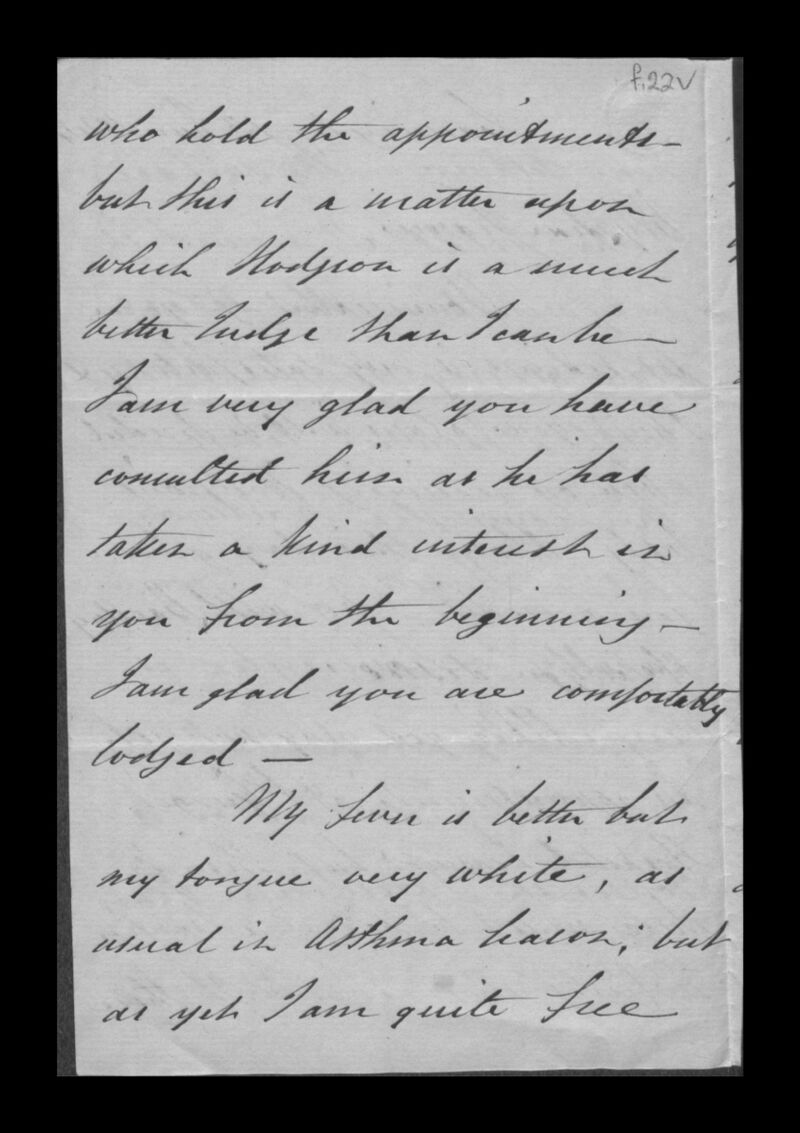 f.22v
who hold the appointments –
but this is a matter upon
which Hodgson is a much
better Judge than I can be –
I am very glad you have
consulted him as he has
taken a kind interest in
you from the beginning –
I am glad you are comfortably
lodged –
My fever is better but
my tongue very white, as
usual in Asthma season; but
as yet I am quite free